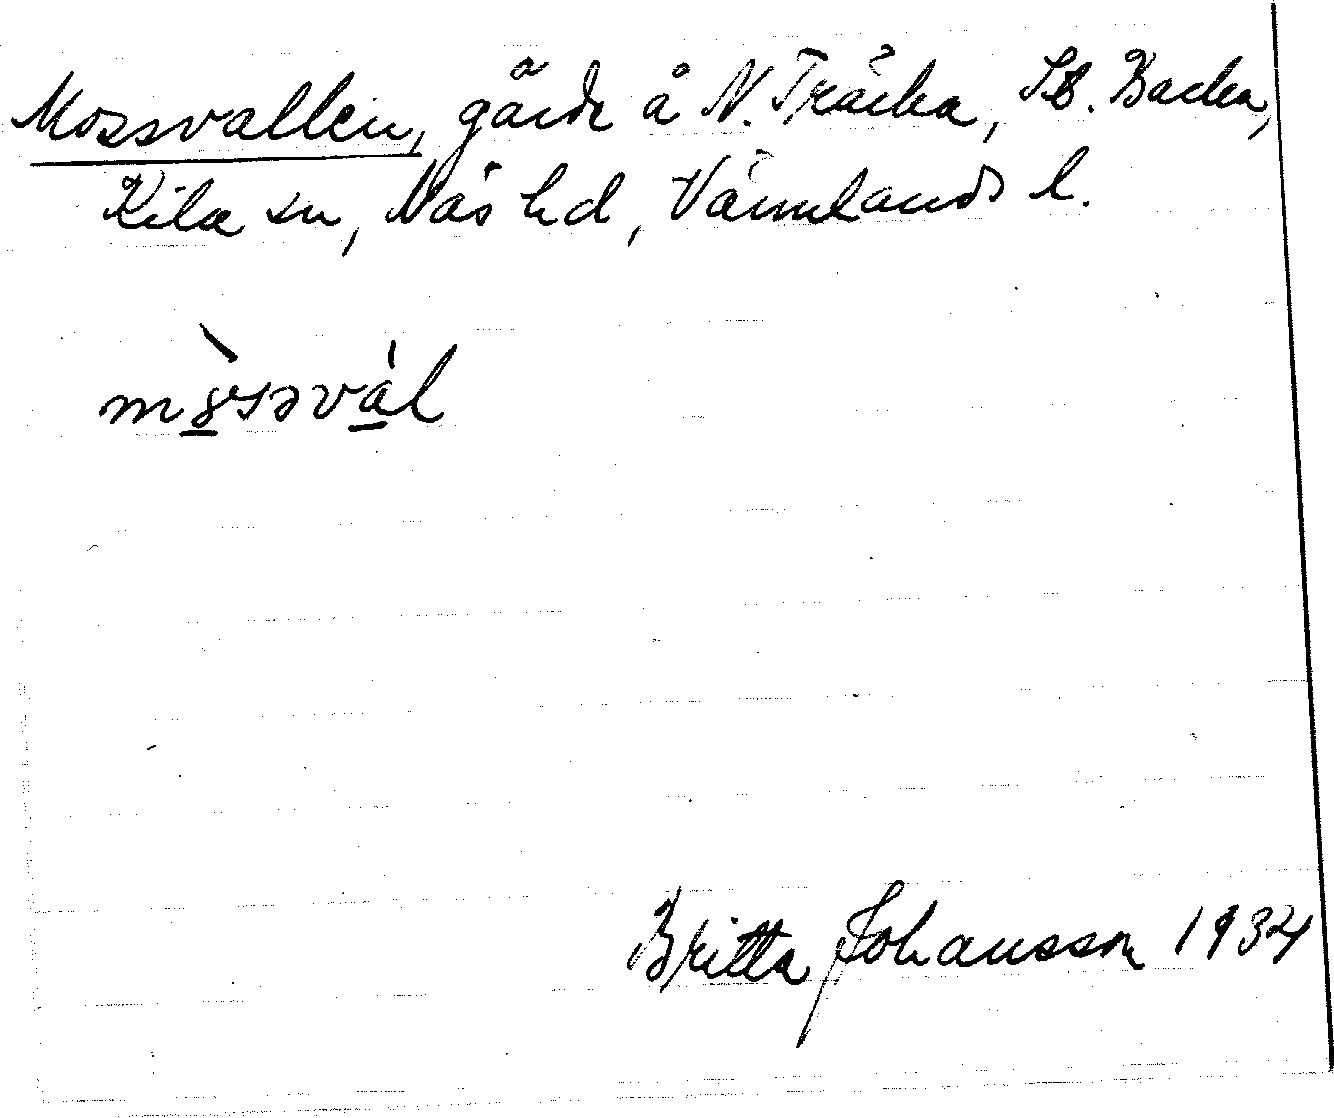 Mossvallen, gärde å N. Träcka, St. Backa,
Kila sn, Näs hd, Värmlands l.
mo̱̊səva̱l
Britta Johansson 1934